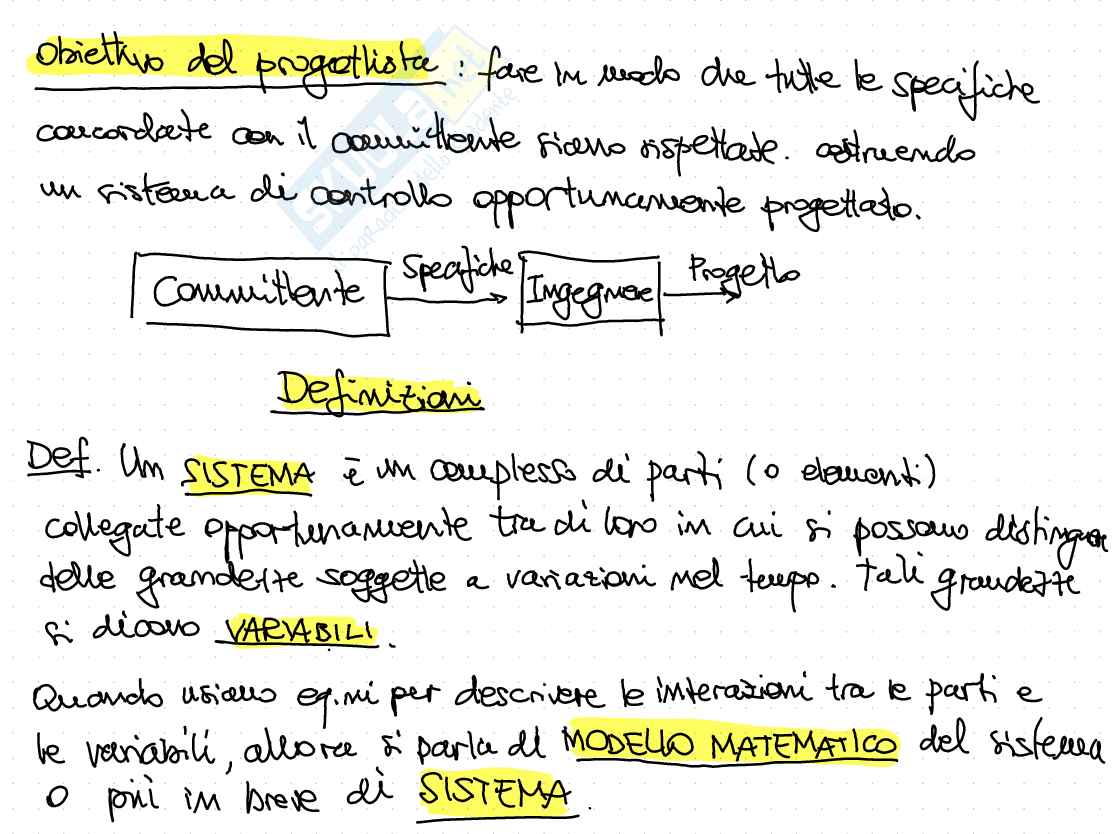 Obiettivo del progettista : fare in modo che tutte le specifiche
concordate con il committente siano rispettate. costruendo
un sistema di controllo opportunamente progettato.
Committente Specifiche Ingegnere Progetto
Definizioni
Def. Un SISTEMA è un complesso di parti (o elementi)
collegate opportunamente tra di loro in cui si possono distinguere
delle grandezze soggette a variazioni nel tempo. Tali grandezze
si dicono VARIABILI.
Quando usiamo eq.ni per descrivere le interazioni tra le parti e
le variabili, allora si parla di MODELLO MATEMATICO del sistema
o più in breve di SISTEMA.
SKUOLA.net